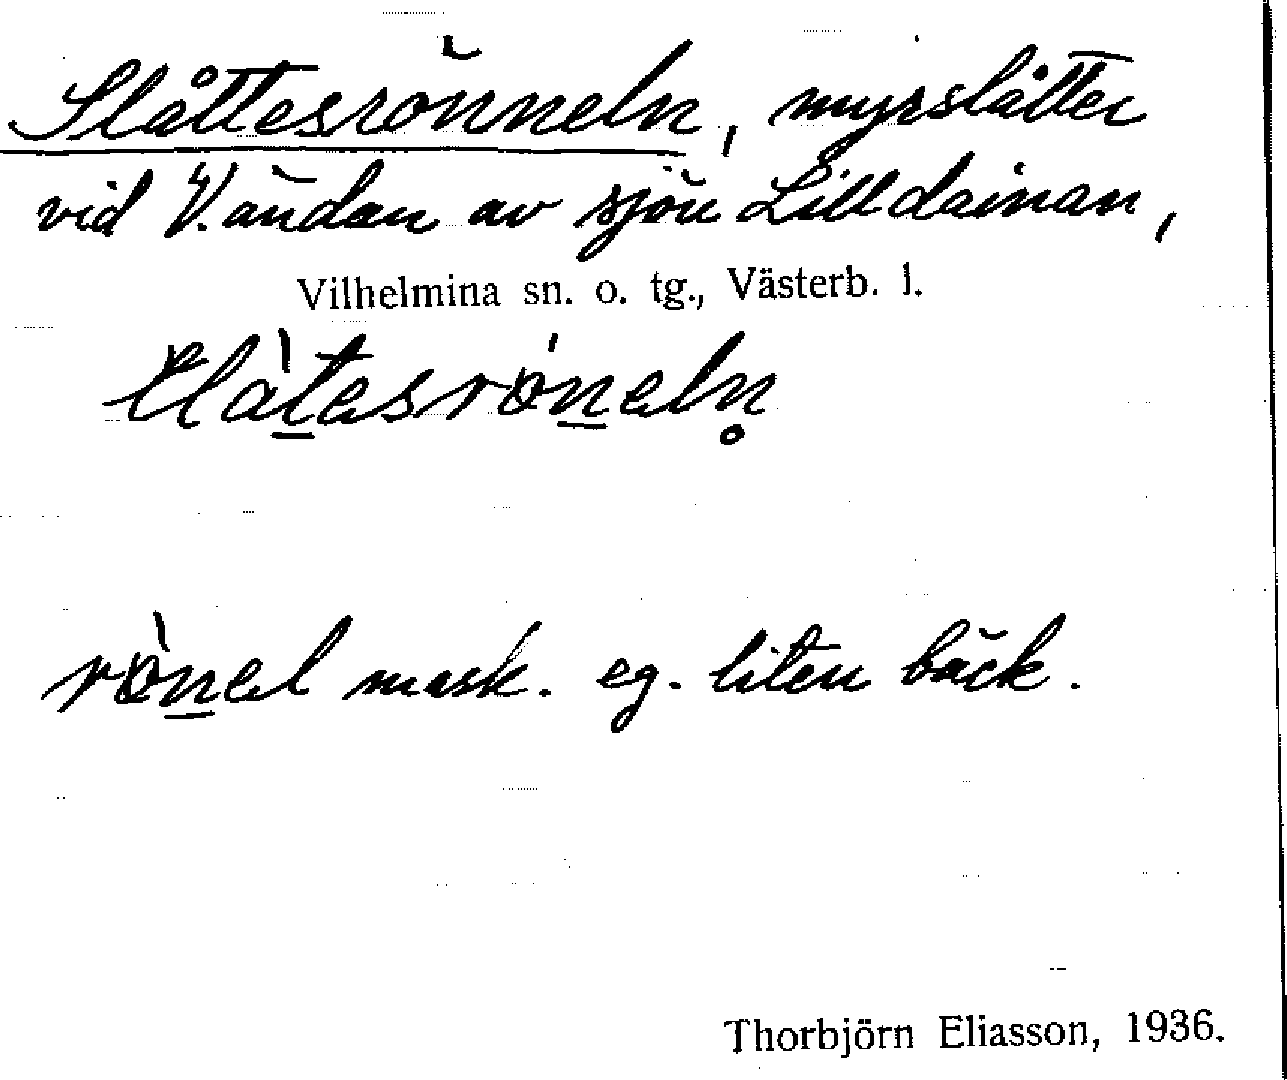 Slåttesrönneln, myrslåtter
vid V. ändan av sjön Lill-dainan,
Vilhelmina sn. o. tg., Västerb. l.
rönel mask. eg. liten bäck.
Thorbjörn Eliasson, 1936.